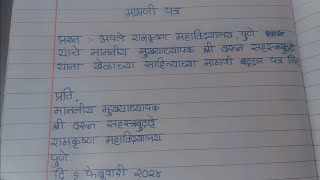 मागणी पत्र
प्रश्न :- आपले रामकृष्ण महाविद्यालय पुणे
यांचे माननीय मुख्याध्यापक श्री वरुन सहस्त्रबुद्धे
यांना खेळाच्या साहित्याच्या मागणी बद्दल पत्र
प्रति,
माननीय मुख्याध्यापक
श्री वरुन सहस्त्रबुद्धे
रामकृष्ण महाविद्यालय
पुणे
दि १ फेब्रुवारी २०२४